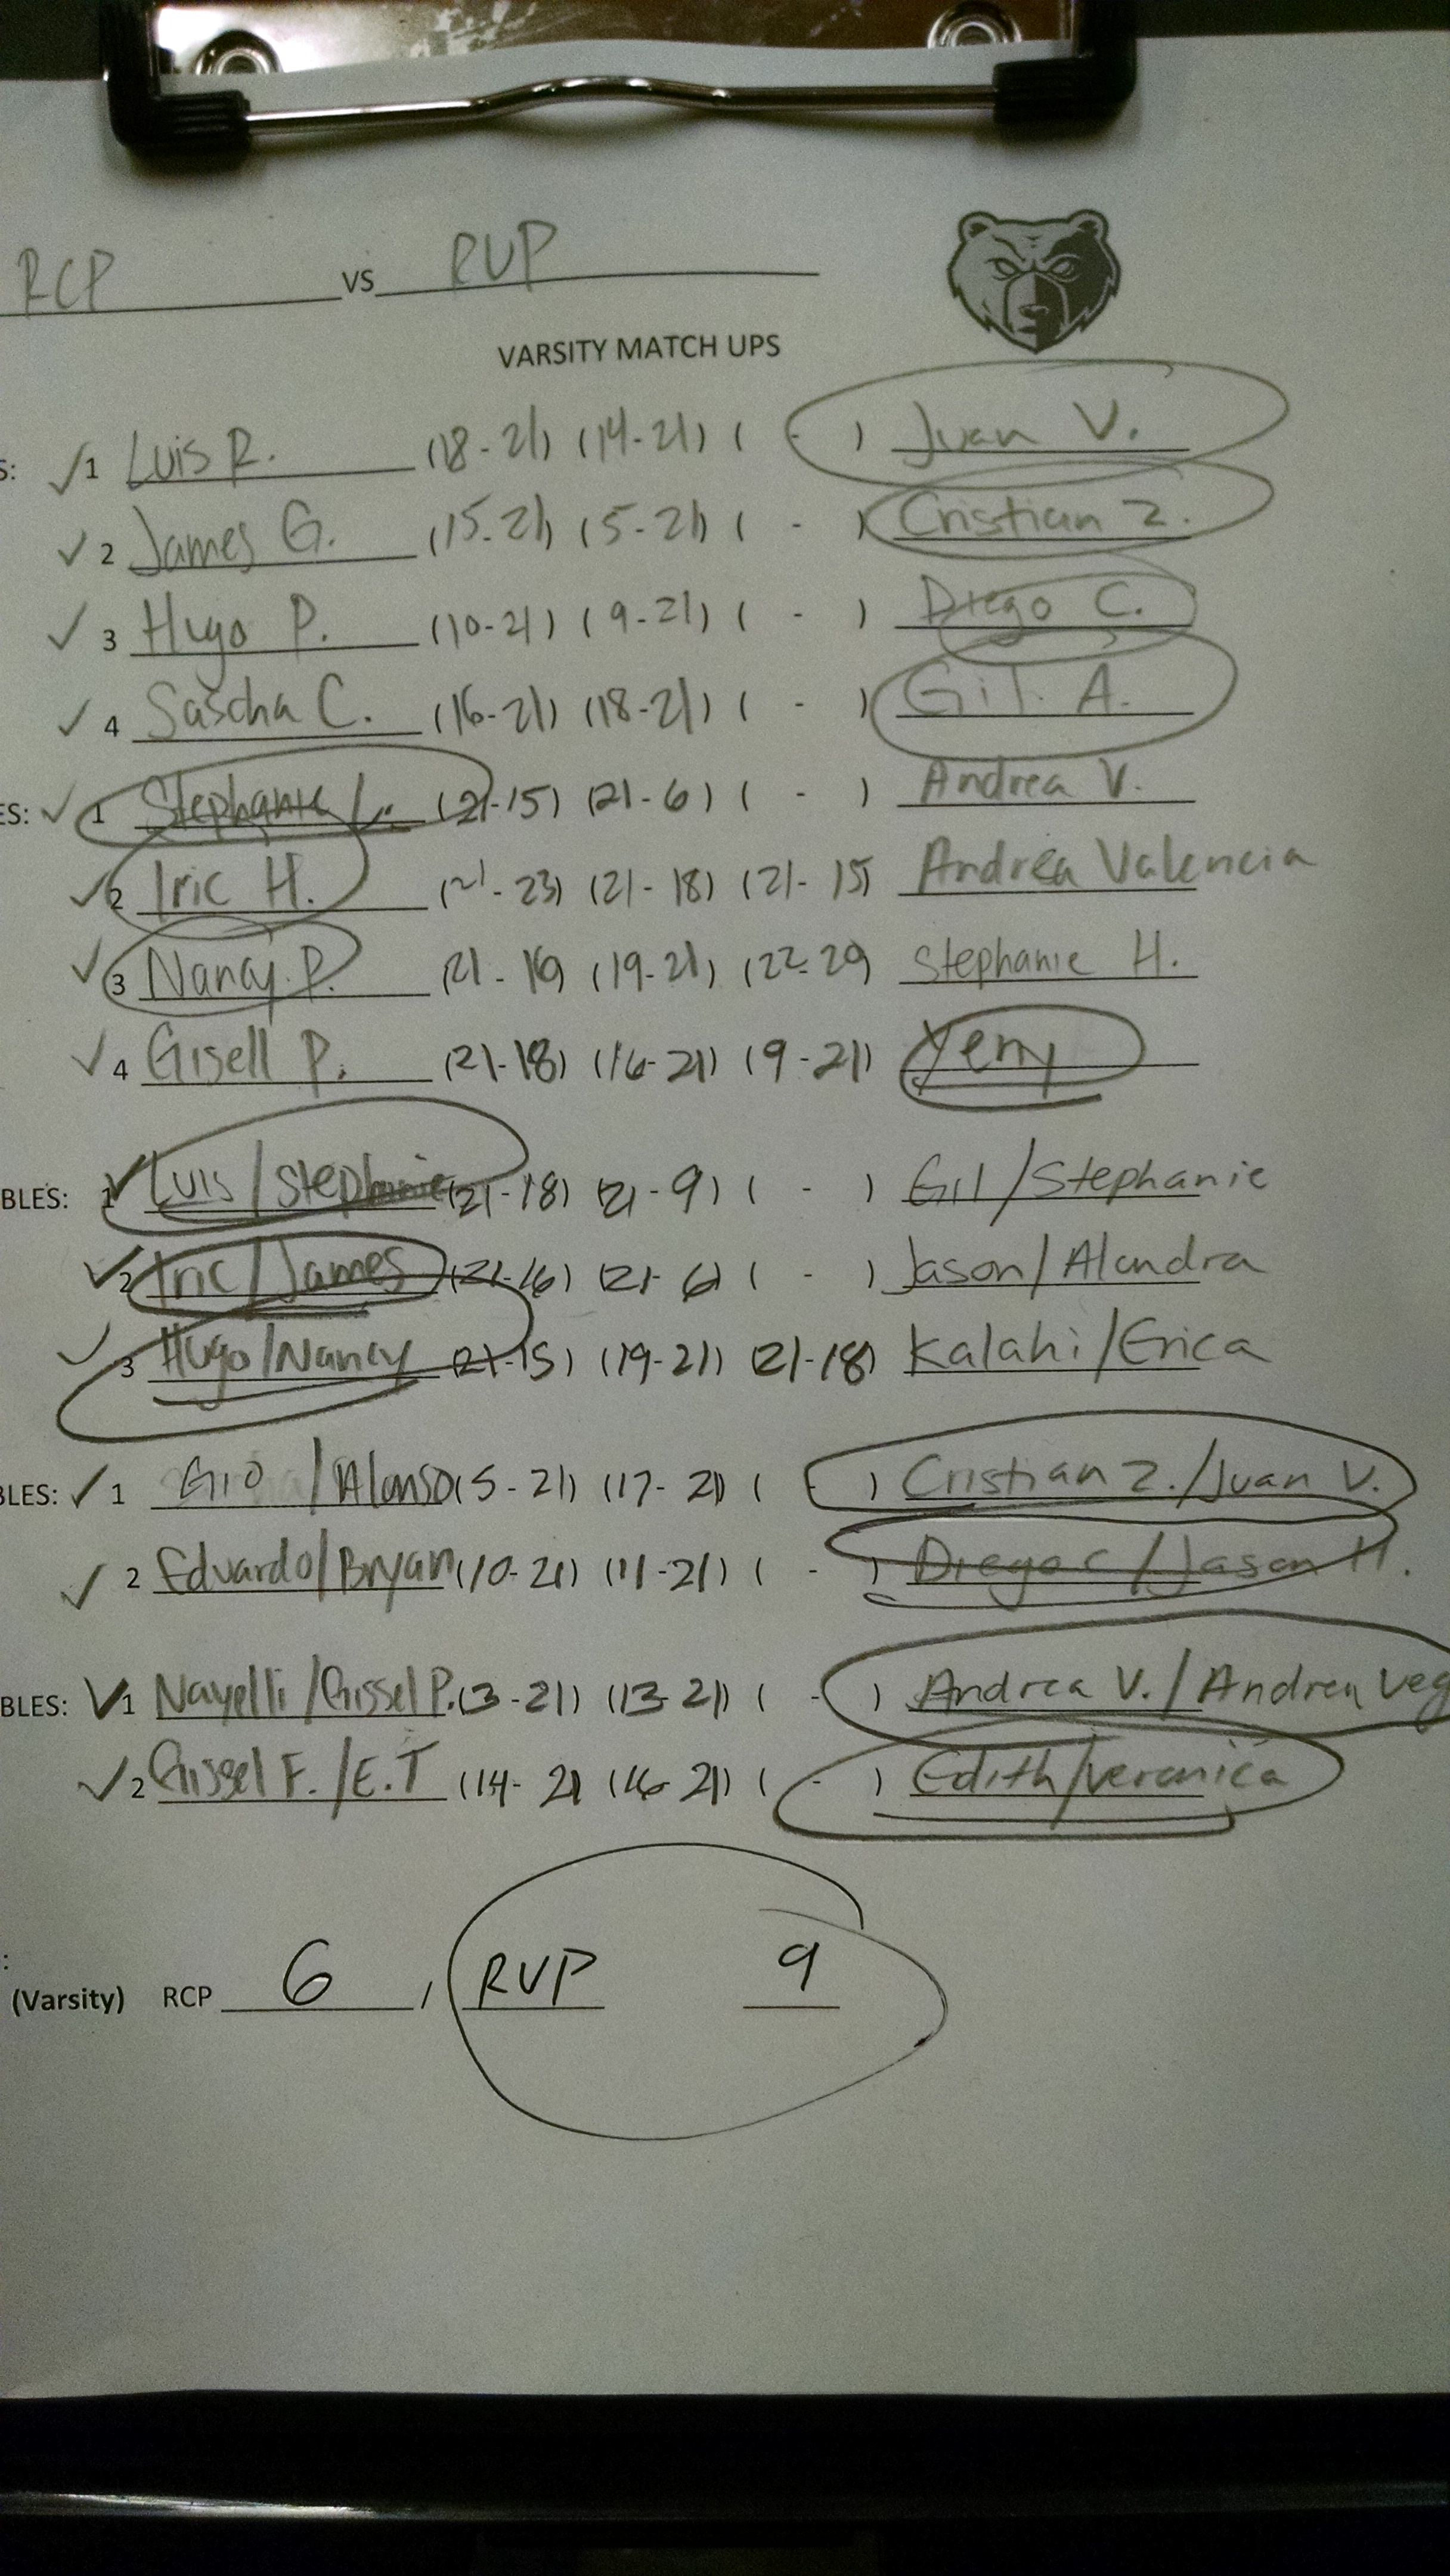 RCP vs RVP
VARSITY MATCH UPS
S: ✓ 1 Luis R. (18-21) (14-21) ( - ) Juan V.
✓ 2 James G. (15-21) (5-21) ( - ) Cristian Z.
✓ 3 Hugo P. (10-21) (9-21) ( - ) Diego C.
✓ 4 Sascha C. (16-21) (18-21) ( - ) Gil. A.
ES: ✓ 1 Stephanie L. (21-15) (21-6) ( - ) Andrea V.
✓ 2 Iric H. (21-23) (21-18) (21-15) Andrea Valencia
✓ 3 Nancy P. (21-19) (19-21) (22-20) Stephanie H.
✓ 4 Gisell P. (21-18) (16-21) (9-21) Yeny
BLES: ✓ 1 Luis/Stephanie (21-18) (21-9) ( - ) Gil/Stephanie
✓ 2 Iric/James (21-16) (21-6) ( - ) Jason/Alondra
✓ 3 Hugo/Nancy (21-15) (19-21) (21-18) Kalahi/Erica
BLES: ✓ 1 Gio/Alonso (5-21) (17-21) ( - ) Cristian Z./Juan V.
✓ 2 Edvardo/Bryan (10-21) (11-21) ( - ) Diego C/Jason H.
BLES: ✓ 1 Nayelli/Gissel P. (3-21) (13-21) ( - ) Andrea V./Andrea Veg
✓ 2 Gissel F./E.T (14-21) (16-21) ( - ) Edith/Veronica
:
(Varsity) RCP 6, RVP 9